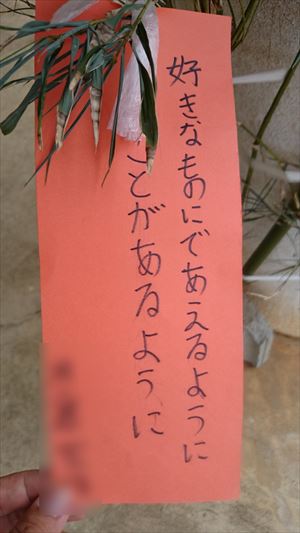 好きなものにであえるように
ことがあるように